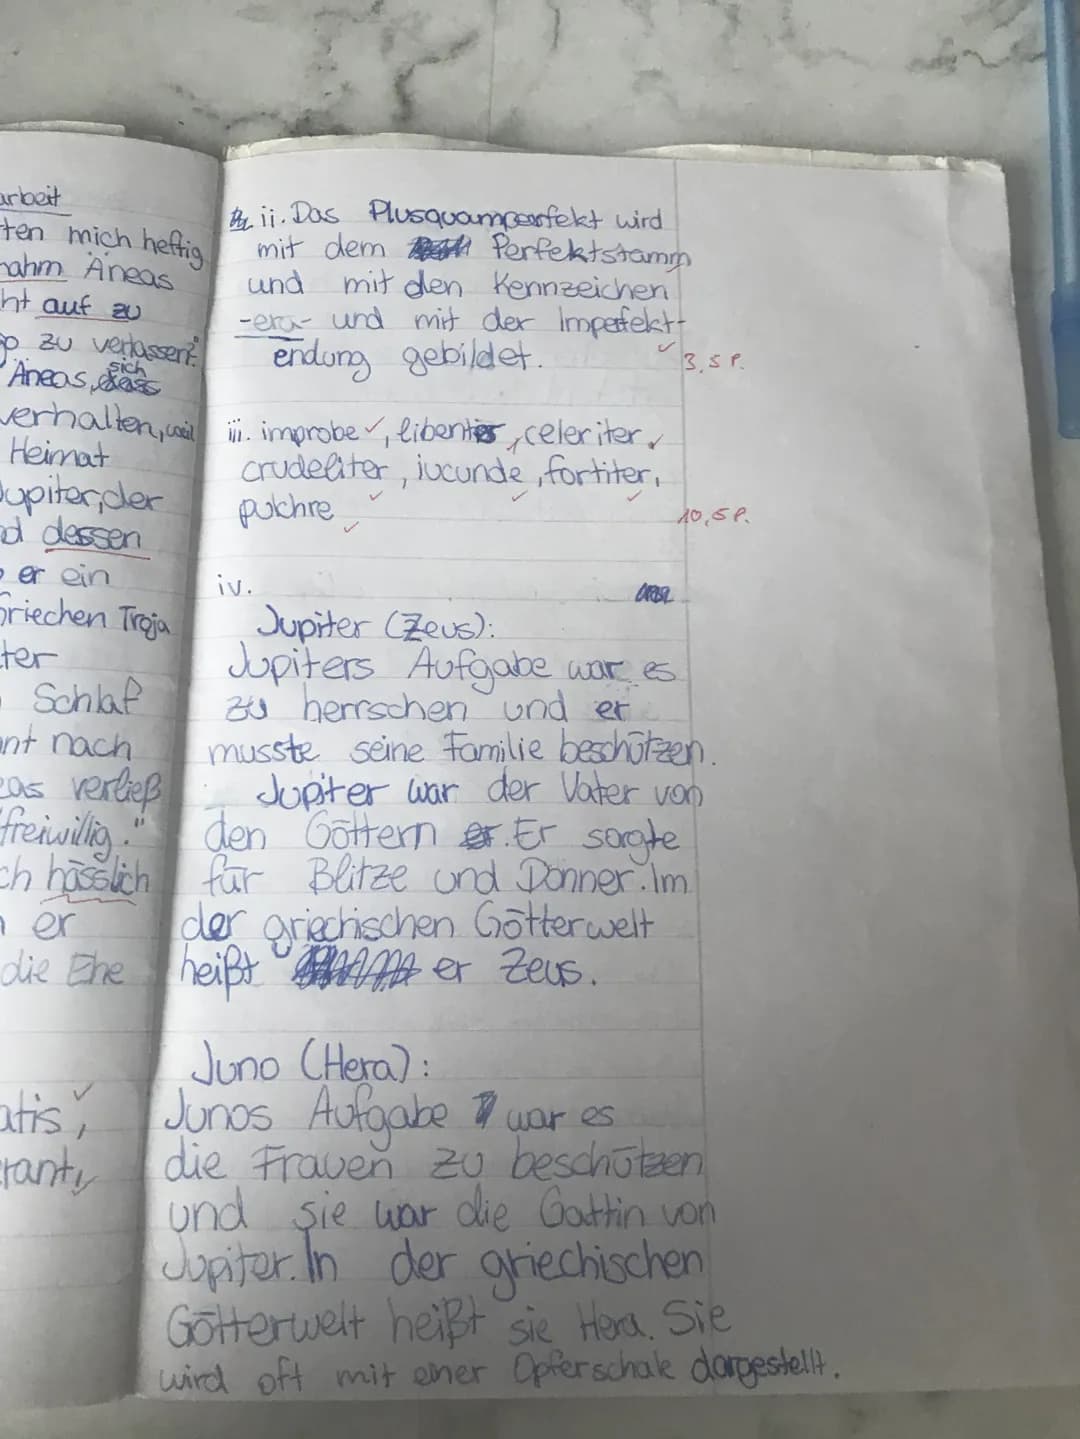 arbeit
ten mich heftig
nahm Äneas
ht auf zu
go zu verlassen?
sich
Äneas,
verhalten, weil
Heimat
Jupiter, der
nd dessen
er ein
Griechen Troja
ter
Schlaf
nt nach
eas verließ
freiwillig."
ch hässlich
er
die Ehe
atis,
erant,
ii. Das Plusquamperfekt wird
mit dem Perfektstamm
und mit den Kennzeichen
-era- und mit der Imperfekt-
endung gebildet.
3,5 P.
iii. improbe, libenter, celeriter
crudeliter, iucunde, fortiter,
pulchre
10,5 P.
iv.
Jupiter (Zeus):
Jupiters Aufgabe war es
zu herrschen und er
musste seine Familie beschützen.
Jupiter war der Vater von
den Göttern. Er sorgte
für Blitze und Donner. Im
der griechischen Götterwelt
heißt er Zeus.
Juno (Hera):
Junos Aufgabe war es
die Frauen zu beschützen
und sie war die Gattin von
Jupiter. In der griechischen
Götterwelt heißt sie Hera. Sie
wird oft mit einer Opferschale dargestellt.